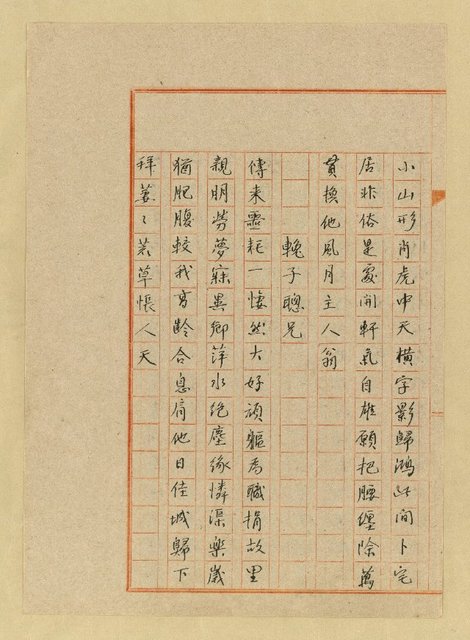 小山形肖虎中天橫字影歸鴻此間卜宅
居非俗是處開軒氣自雄願把腰纏除萬
貫換他風月主人翁
輓子聰兄
傳來噩耗一悽然大好頑軀為職捐故里
親朋勞夢寐異鄉萍水絕塵緣憐渠樂歲
猶肥腹較我高齡合息肩他日佳城歸下
拜萋〻芳草悵人天